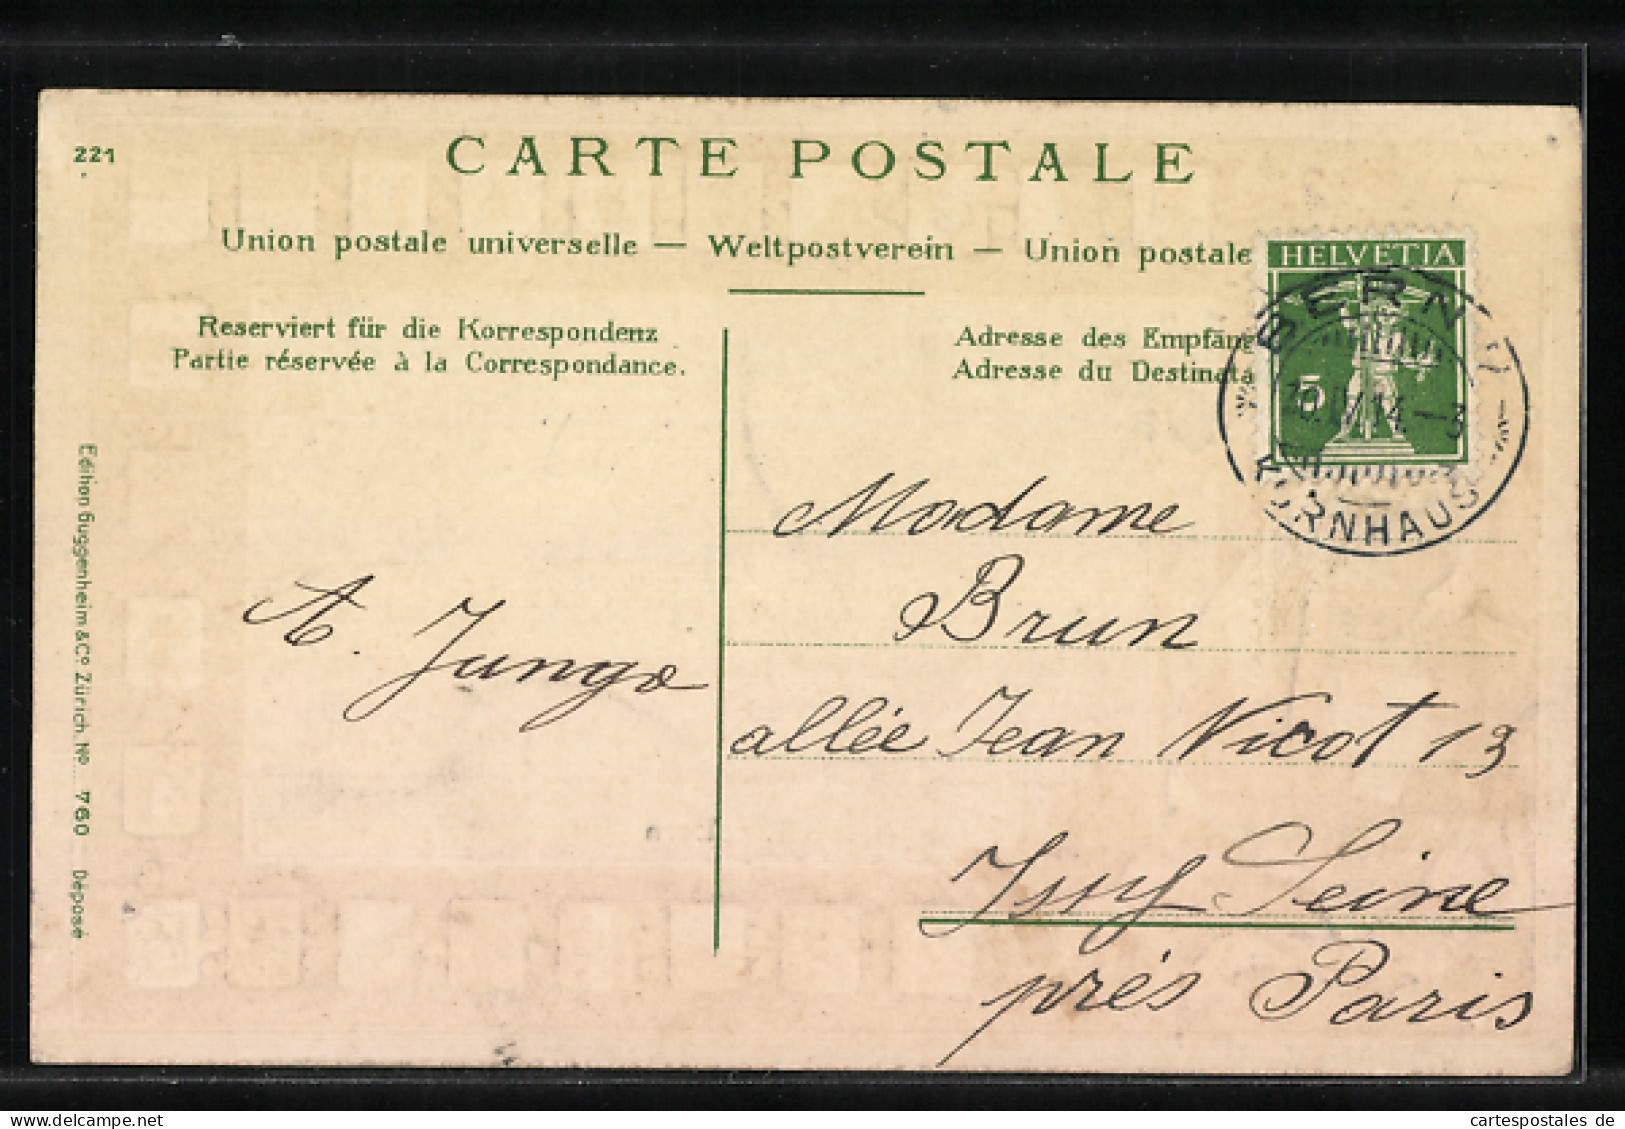 221
CARTE POSTALE
Union postale universelle — Weltpostverein — Union postale
Reserviert für die Korrespondenz
Partie réservée à la Correspondance.
Adresse des Empfäng
Adresse du Destinata
HELVETIA
5
BERN
10.IV.14.–3
KORNHAUS
Madame
Brun
allée Jean Nicot 13
Issy-Seine
près Paris
A. Jungo
Edition Guggenheim & Co. Zürich No. 760 Déposé
cartespostales de